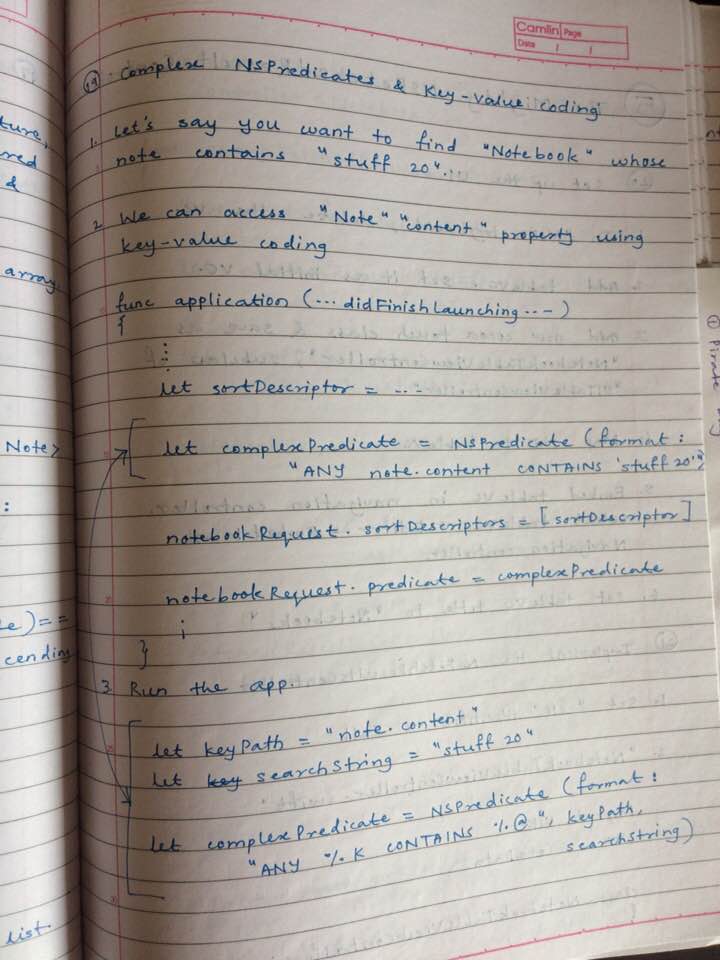 Camlin Page
Date / /
19. Complex NSPredicates & Key-value coding
1. Let's say you want to find "Notebook" whose
note contains "stuff 20".
2. We can access "Note" "content" property using
key-value coding
func application (...didFinishLaunching...)
{
let sortDescriptor = ...
let complexPredicate = NSPredicate (format:
"ANY note.content CONTAINS 'stuff 20'")
notebookRequest.sortDescriptors = [sortDescriptor]
notebookRequest.predicate = complexPredicate
}
3. Run the app.
let keyPath = "note.content"
let searchString = "stuff 20"
let complexPredicate = NSPredicate (format:
"ANY %K CONTAINS %@", keyPath,
searchString)
ture,
red
d
array
Note>
:
e) ==
cending
list